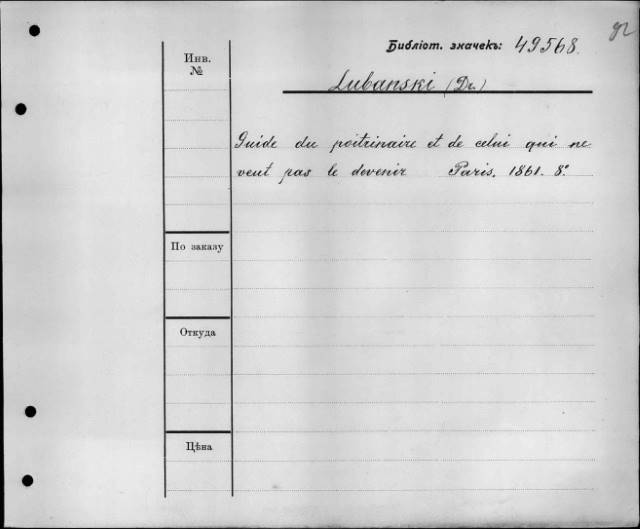 92
Библіот. значекъ: 49568.
Инв.
№
Lubanski (Dr.)
Guide du poitrinaire et de celui qui ne
veut pas le devenir Paris. 1861. 8°
По заказу
Откуда
Цѣна